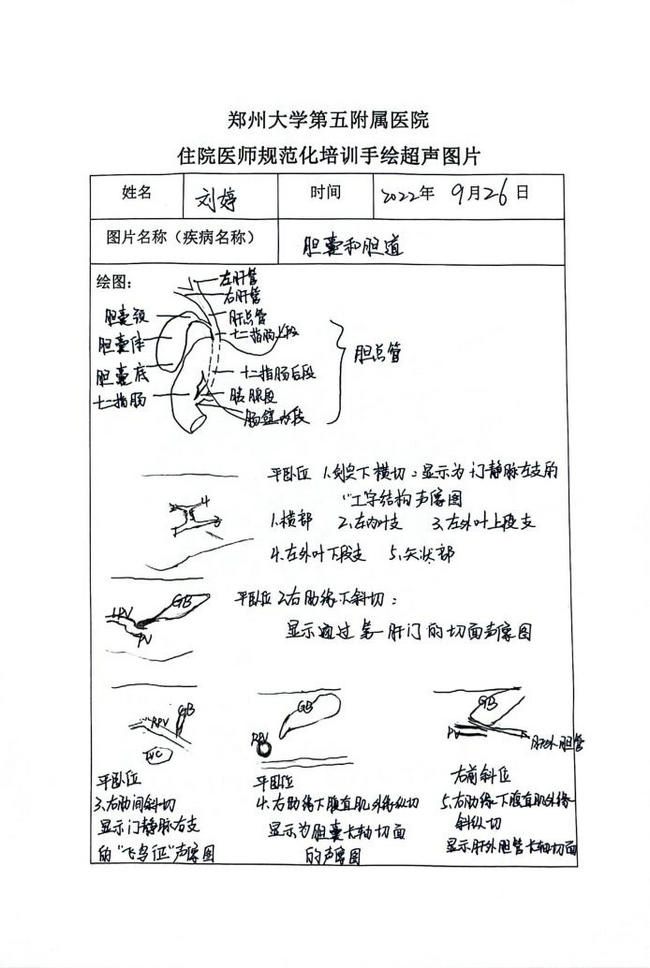 郑州大学第五附属医院
住院医师规范化培训手绘超声图片
姓名 刘婷 时间 2022年 9月26日
图片名称（疾病名称） 胆囊和胆道
绘图：
左肝管
右肝管
胆囊颈
肝总管
胆囊体
十二指肠上段
胆总管
胆囊底
十二指肠后段
十二指肠
胰腺段
肠壁内段
平卧位 1.剑突下横切：显示为门静脉左支的
"工字结构声像图
1.横部 2.左内叶支 3.左外叶上段支
4.左外叶下段支 5.矢状部
平卧位 2.右肋缘下斜切：
显示通过第一肝门的切面声像图
GB
LPV
PV
RPV GB
IVC
平卧位
3.右肋间斜切
显示门静脉右支
的"飞鸟征"声像图
GB
RPV
平卧位
4.右肋缘下腹直肌外缘纵切
显示为胆囊长轴切面
的声像图
GB
PV
肝外胆管
右前斜位
5.右肋缘下腹直肌外缘
斜纵切
显示肝外胆管长轴切面